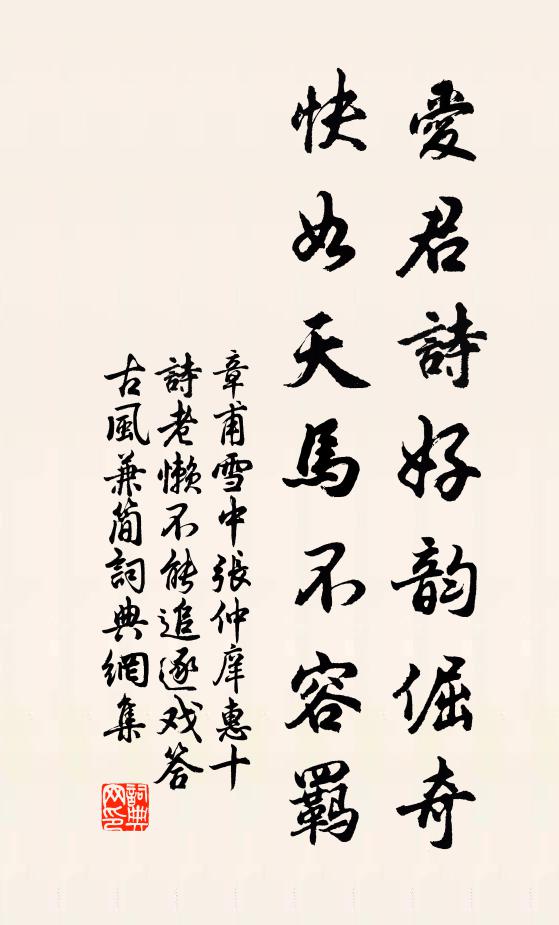 愛君詩好韵倔奇
快如天馬不容羈
章甫雪中張仲庠惠十
詩老懶不能追逐戏答
古風兼简詞典網集
詞典
网印